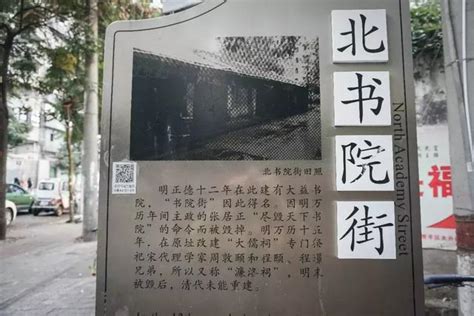 北书院街
North Academy Street
北书院街旧照
明正德十二年在此建有大益书
院，“书院街”因此得名。因明万
历年间主政的张居正“尽毁天下书
院”的命令而被毁掉。明万历十五
年，在原址改建“大儒祠”专门祭
祀宋代理学家周敦颐和程颢、程颐
兄弟，所以又称“濂洛祠”，明末
被毁后，清代未能重建。
福